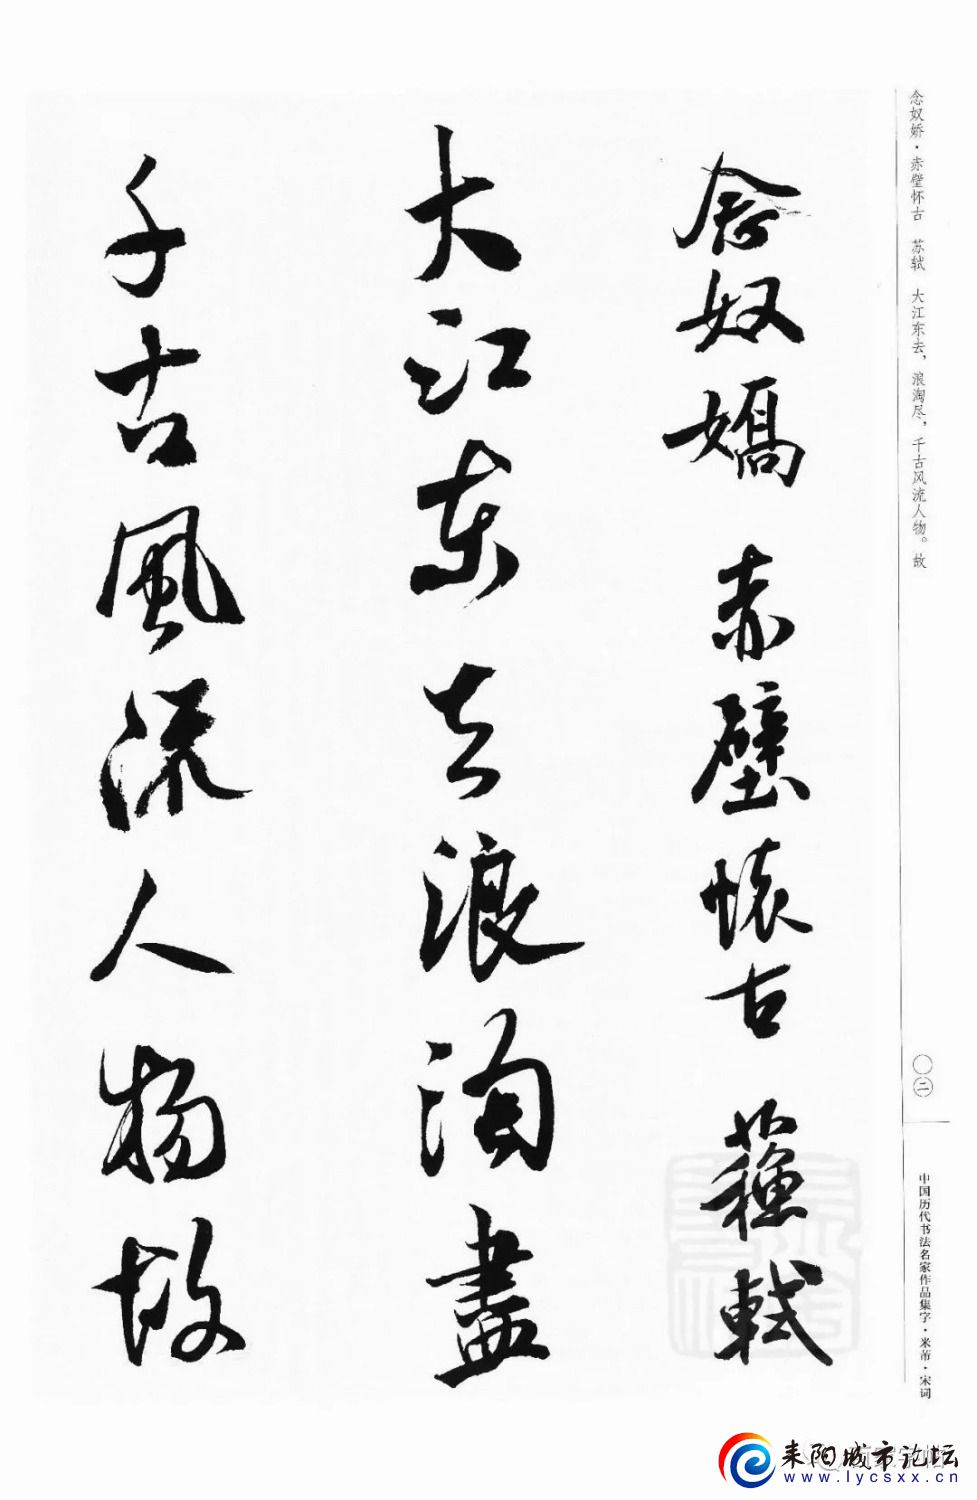 念奴娇·赤壁怀古 苏轼 大江东去，浪淘尽，千古风流人物。故
念奴嬌 赤壁懷古 蘇軾
大江東去浪淘盡
千古風流人物故
〇二
中国历代书法名家作品集字·米芾·宋词
耒阳城市论坛
www.lycsxx.cn